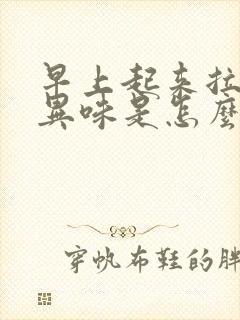 早上起来拉
異味是怎麼
穿帆布鞋的胖